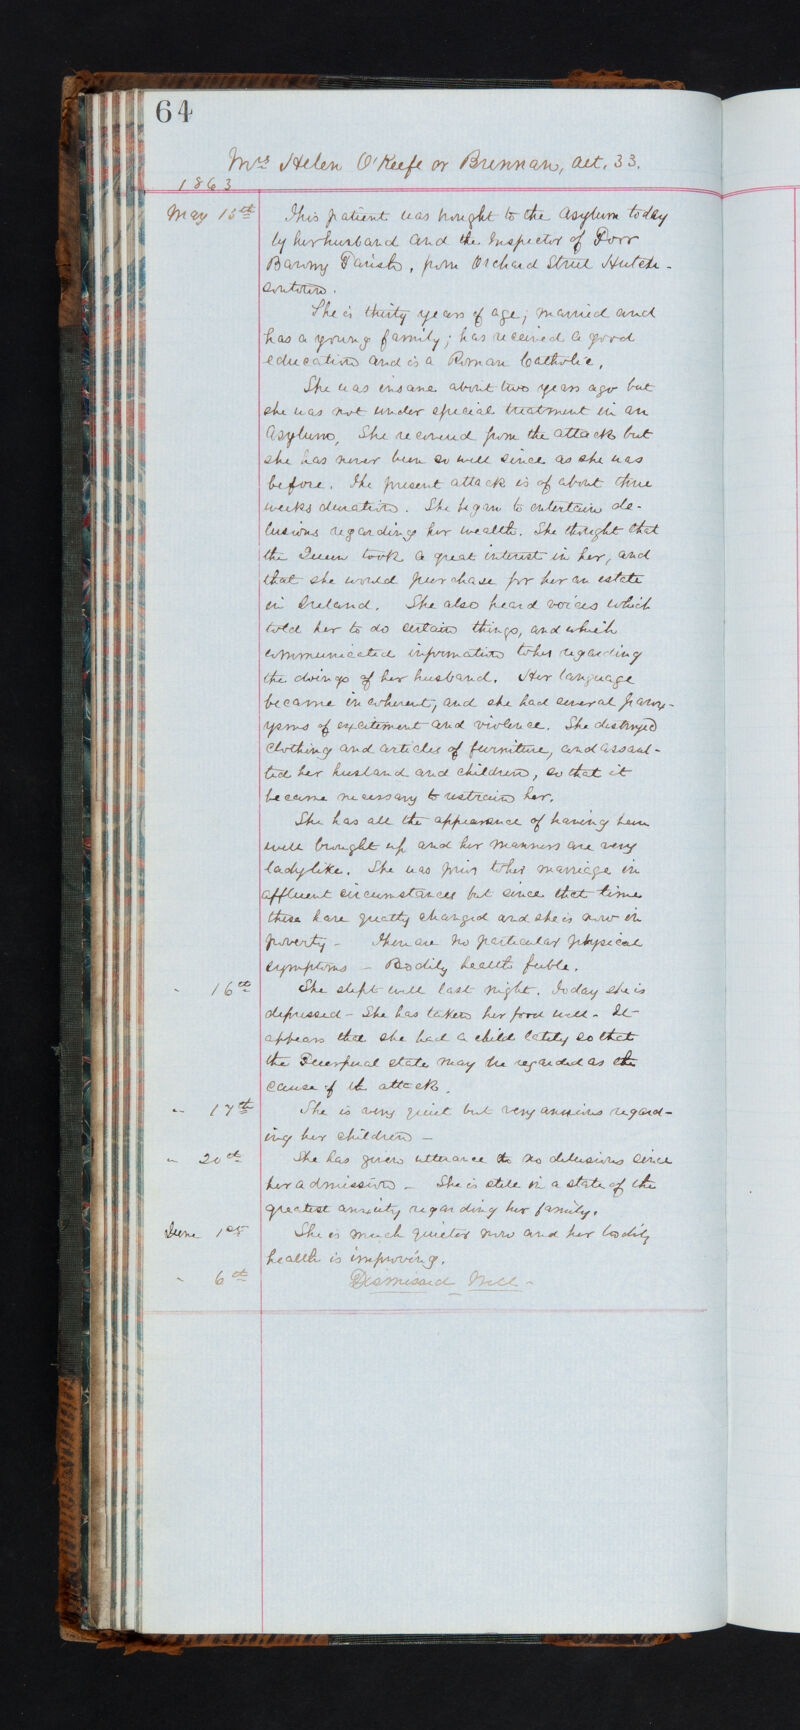 64
Mrs Helen O'Keefe or Brennan, aet. 33.
1863
May 15th This patient was brought to the Asylum today
by her husband and the Inspector of Poor
Barony Parish, from Orchard Street Hutche-
sontown.
She is thirty years of age; married and
has a young family; has received a good
education and is a Roman Catholic.
She was insane about two years ago but
she was not under special treatment in an
Asylum. She recovered from the attack but
she has never been so well since as she was
before. The present attack is of about three
weeks duration. She began to entertain de-
lusions regarding her wealth. She thought that
the Queen took a great interest in her, and
that she would purchase for her an estate
in Ireland. She also heard voices which
told her to do certain things, and which
communicated information to her regarding
the doings of her husband. Her language
became incoherent, and she had several parox-
ysms of excitement and violence. She destroyed
clothing and articles of furniture, and assaul-
ted her husband and children, so that it
became necessary to restrain her.
She has all the appearance of having been
well brought up and her manners are very
ladylike. She was prior to her marriage in
affluent circumstances but since that time
these have greatly changed and she is now in
poverty - There are no particular physical
symptoms - Bodily health feeble.
" 16th She slept well last night. Today she is
depressed - She has taken her food well - It
appears that she had a child lately so that
the Puerperal state may be regarded as the
cause of the attack.
" 17th She is very quiet but very anxious regard-
ing her children -
" 20th She has given utterance to no delusions since
her admission - She is still in a state of the
greatest anxiety regarding her family.
June 1st She is much quieter now and her bodily
health is improving.
" 6th Dismissed Well -